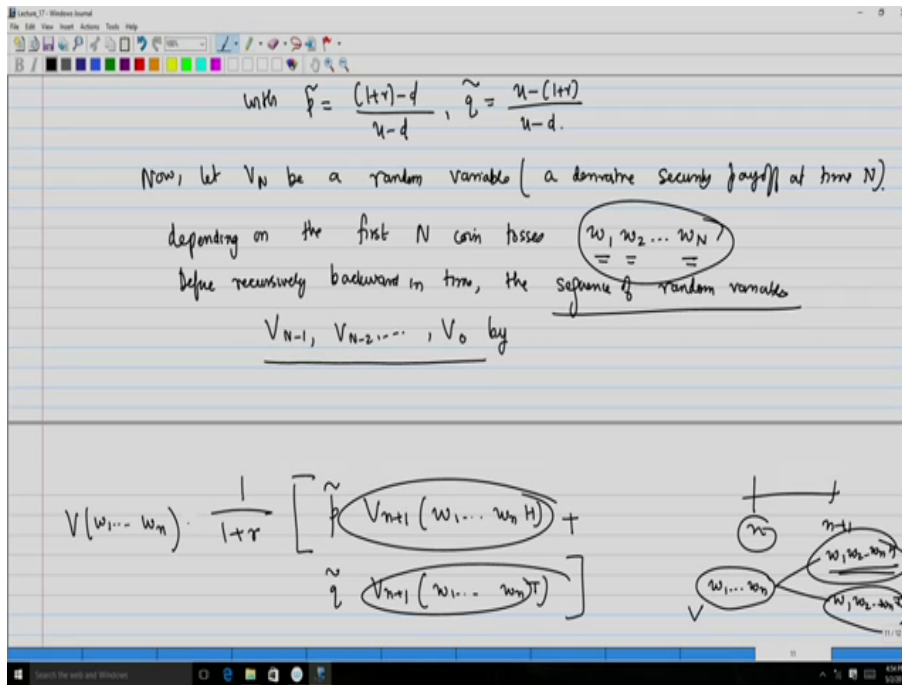 Lecture_17 - Windows Journal
File Edit View Insert Actions Tools Help
with p̃ = (1+r)-d / u-d , q̃ = u-(1+r) / u-d.
Now, let V_N be a random variable ( a derivative security payoff at time N).
depending on the first N coin tosses w_1 w_2 ... w_N
Define recursively backward in time, the sequence of random variables
V_{N-1}, V_{N-2}, ... , V_0 by
V(w_1... w_n) . 1 / 1+r [ p̃ V_{n+1} (w_1... w_n H) +
q̃ V_{n+1} (w_1... w_n)T) ]
n n+1
w_1 w_2 .. w_n H
w_1 ... w_n
V w_1 w_2 .. w_n T
11 / 12
11
Search the web and Windows